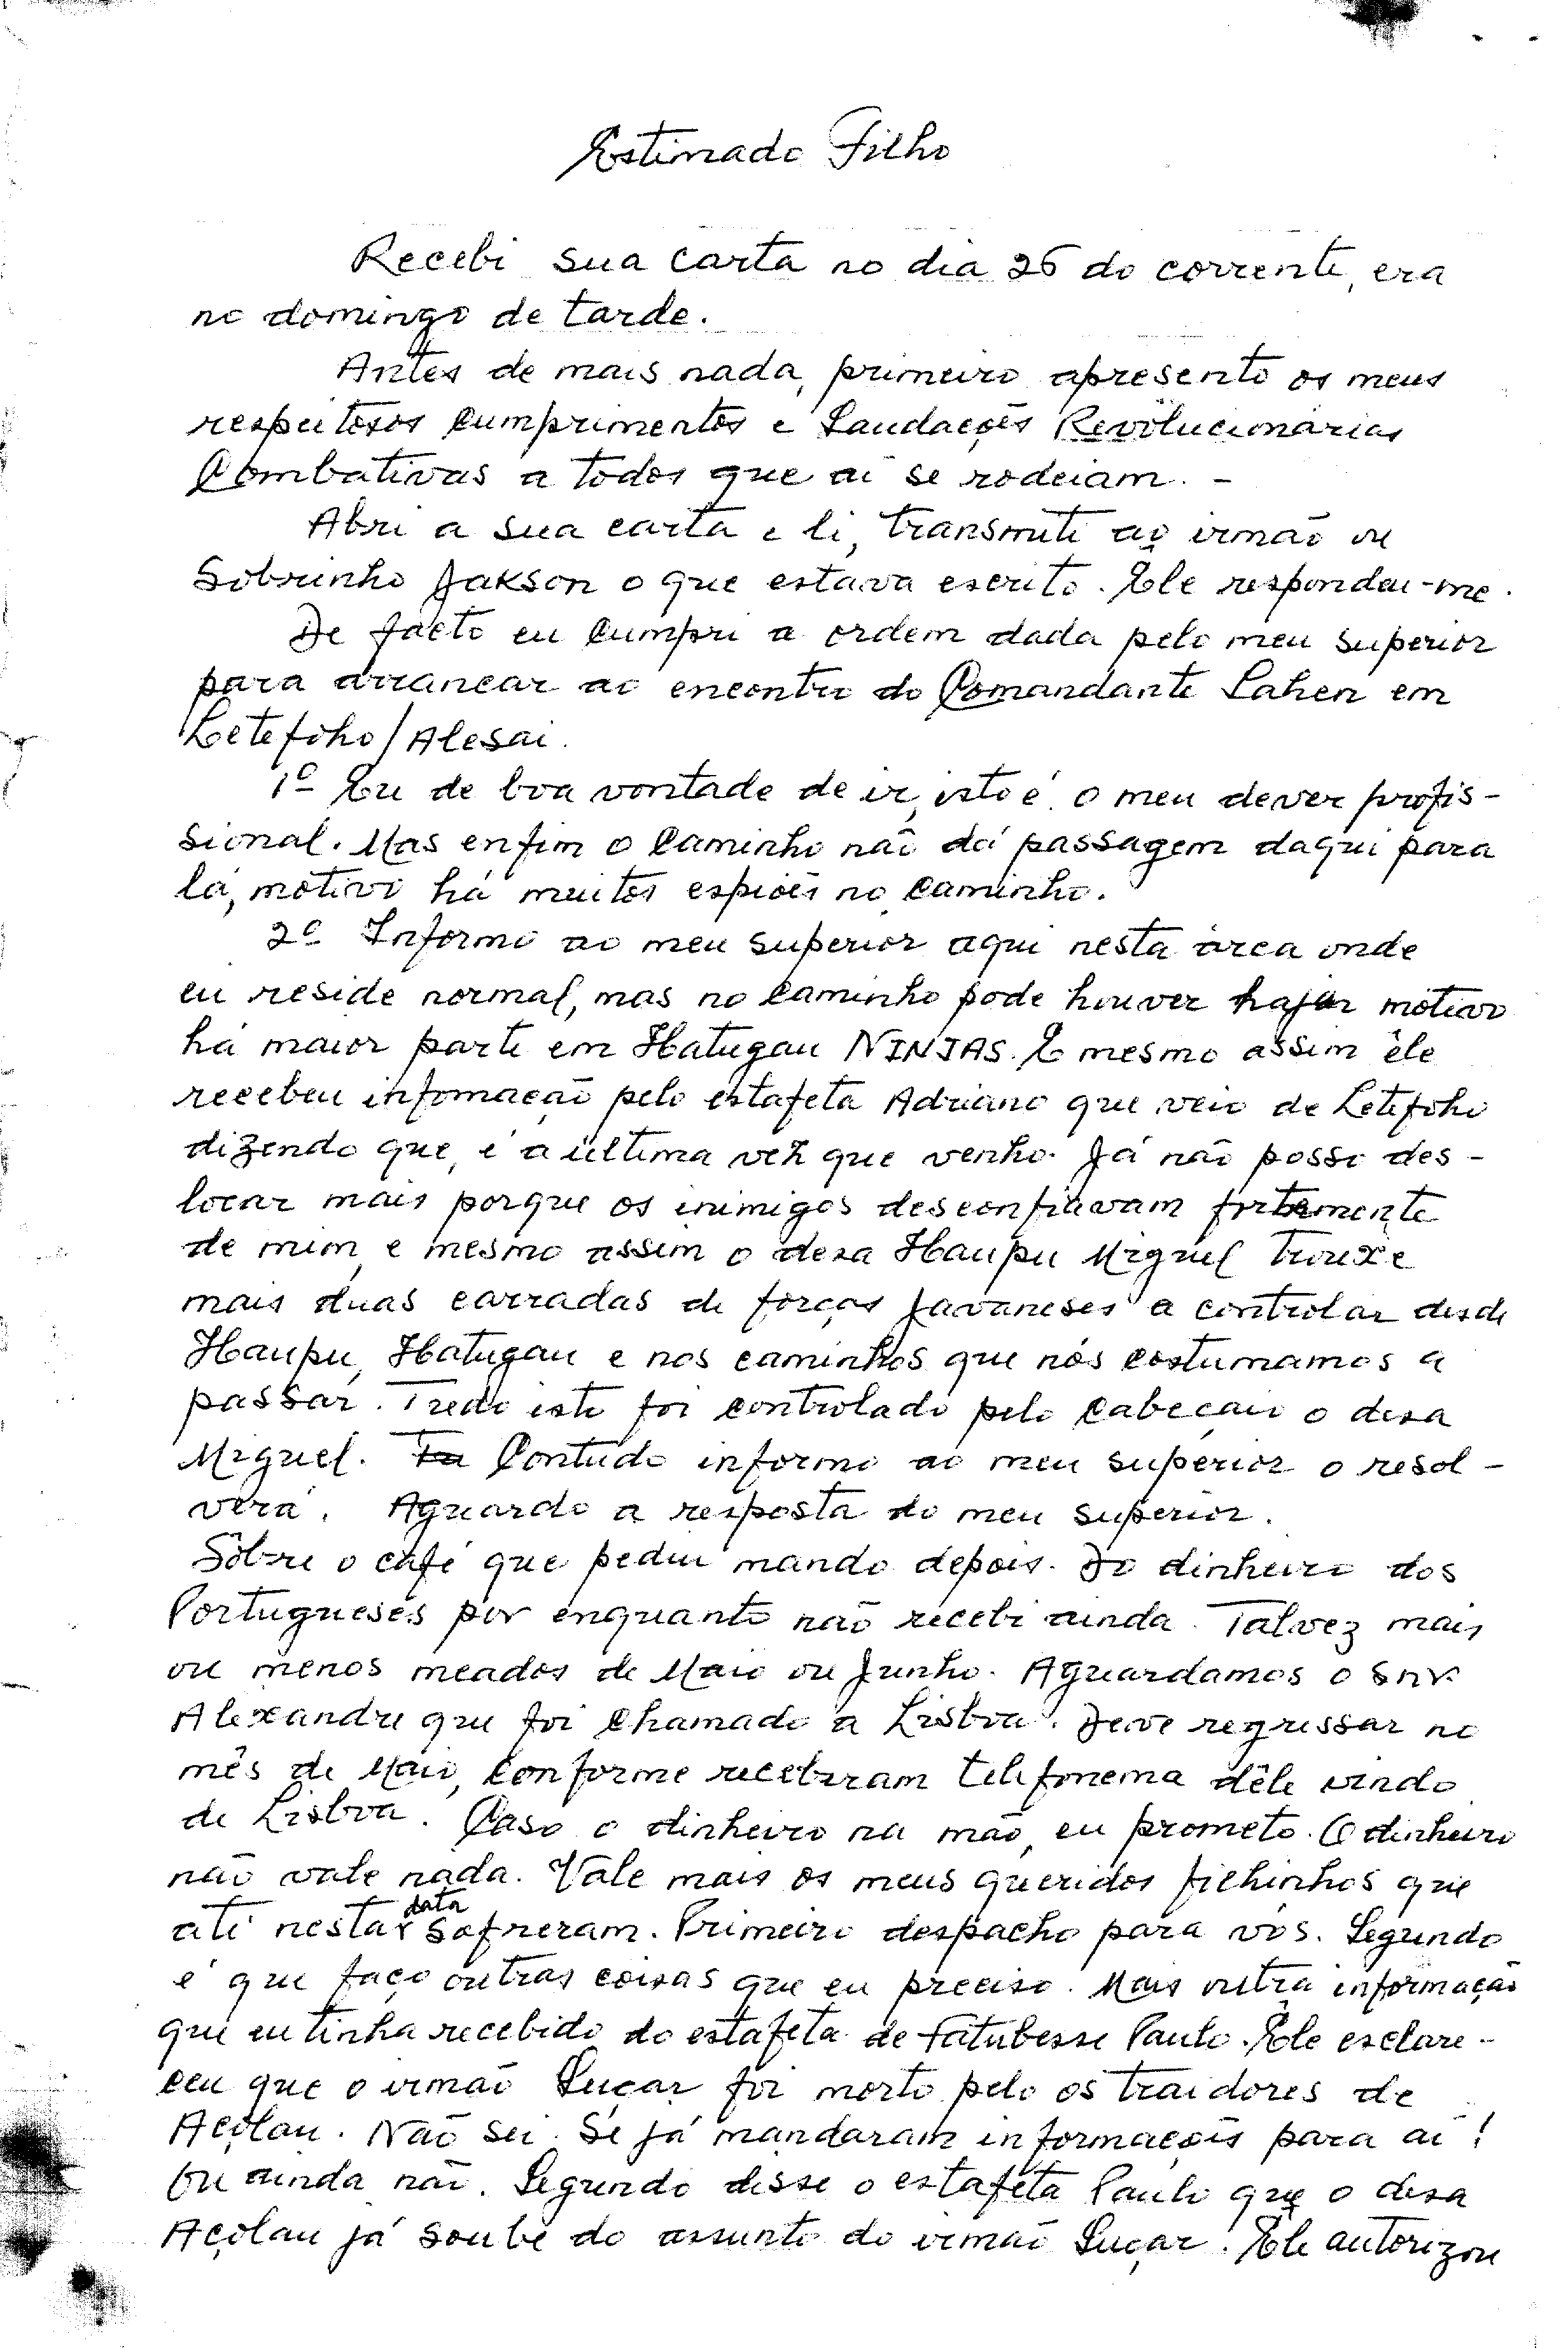 Estimado Filho
Recebi sua carta no dia 26 do corrente, era
no domingo de tarde.
Antes de mais nada, primeiro apresento os meus
respeitosos cumprimentos e Saudações Revolucionárias
Combativas a todos que aí se rodeiam. -
Abri a sua carta e li, transmiti ao irmão ou
Sobrinho Jakson o que estava escrito. Ele respondeu-me.
De facto eu cumpri a ordem dada pelo meu superior
para arrancar ao encontro do Comandante Lahen em
Letefoho/Alesai.
1º Eu de boa vontade de ir, isto é o meu dever profis-
sional. Mas enfim o caminho não dá passagem daqui para
lá, motivo há muitos espiões no caminho.
2º Informo ao meu superior aqui nesta área onde
eu reside normal, mas no caminho pode houver hajar motivo
há maior parte em Hatugau NINJAS. E mesmo assim êle
recebeu infomação pelo estafeta Adriano que veio de Letefoho
dizendo que, é a última vez que venho. Já não posso des-
locar mais porque os inimigos desconfiavam fortemente
de mim, e mesmo assim o desa Haupu Miguel trouxe
mais duas carradas de forças Javaneses a controlar desde
Haupu, Hatugau e nos caminhos que nós costumamos a
passar. Tudo isto foi controlado pelo cabeção o desa
Miguel. Ta Contudo informo ao meu superior o resol-
verá. Aguardo a resposta do meu superior.
Sôbre o café que pediu mando depois. Do dinheiro dos
Portugueses por enquanto não recebi ainda. Talvez mais
ou menos meados de Maio ou Junho. Aguardamos o Snr.
Alexandre que foi chamado a Lisboa. Deve regressar no
mês de Maio, conforme receberam telefonema dêle vindo
de Lisboa. Caso o dinheiro na mão, eu prometo. O dinheiro
não vale nada. Vale mais os meus queridos filhinhos que
até nesta data sofreram. Primeiro despacho para vós. Segundo
é que faço outras coisas que eu preciso. Mais outra informação
que eu tinha recebido do estafeta de Fatubesse Paulo. Ele esclare-
ceu que o irmão Suçar foi morto pelo os traidores de
Açolau. Não sei. Se já mandaram informações para aí!
Ou ainda não. Segundo disse o estafeta Paulo que o desa
Açolau já soube do assunto do irmão Suçar. Ele autorizou